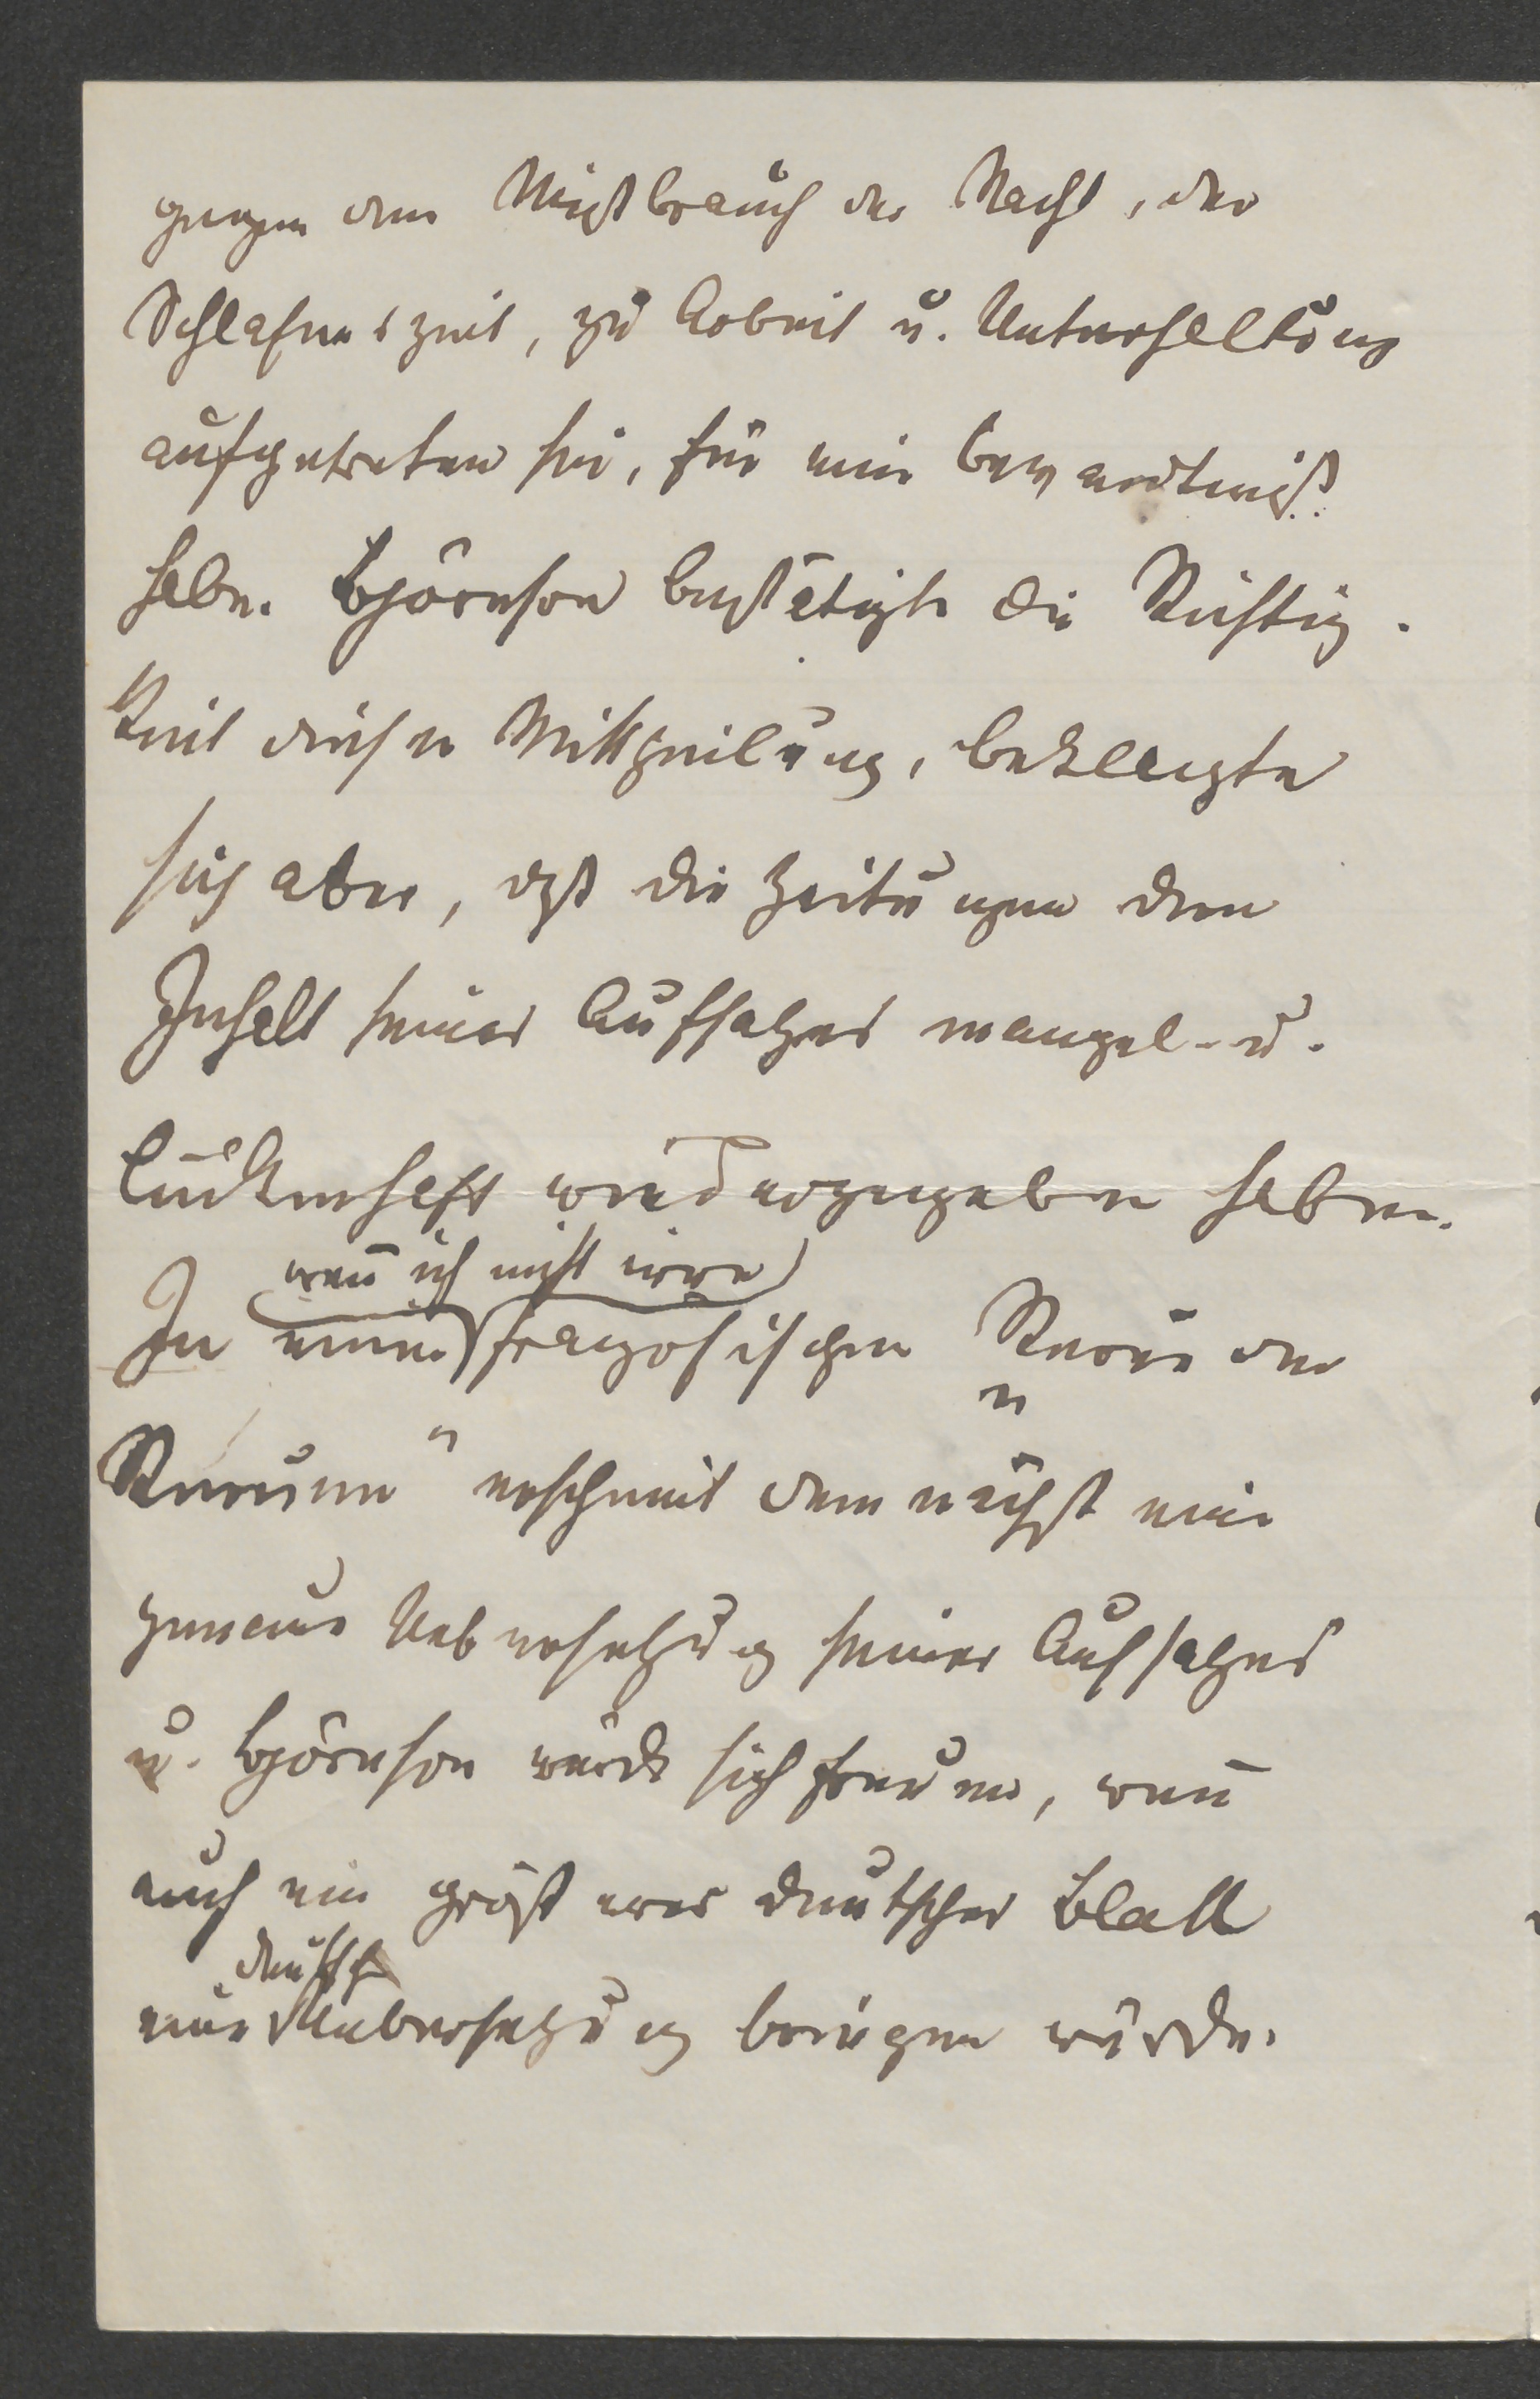 gegen den Mißbrauch der Nacht, der
Schlafenszeit, zu Arbeit u. Unterhaltung
aufgetreten sei, für eine Bewandtniß
habe. Björnson bestätigte die Richtig-
keit dieser Mittheilung, beklagte
sich aber, daß die Zeitungen den
Inhalt seines Aufsatzes mangel- u.
lückenhaft wiedergegeben haben.
wenn ich nicht irre
In einer französischen Revue der
„
Revuen“ erscheint demnächst eine
genaue Uebersetzung seines Aufsatzes
u. Björnson würde sich freuen, wenn
auch ein größeres deutsches Blatt
deutsche
eine Uebersetzung bringen würde.